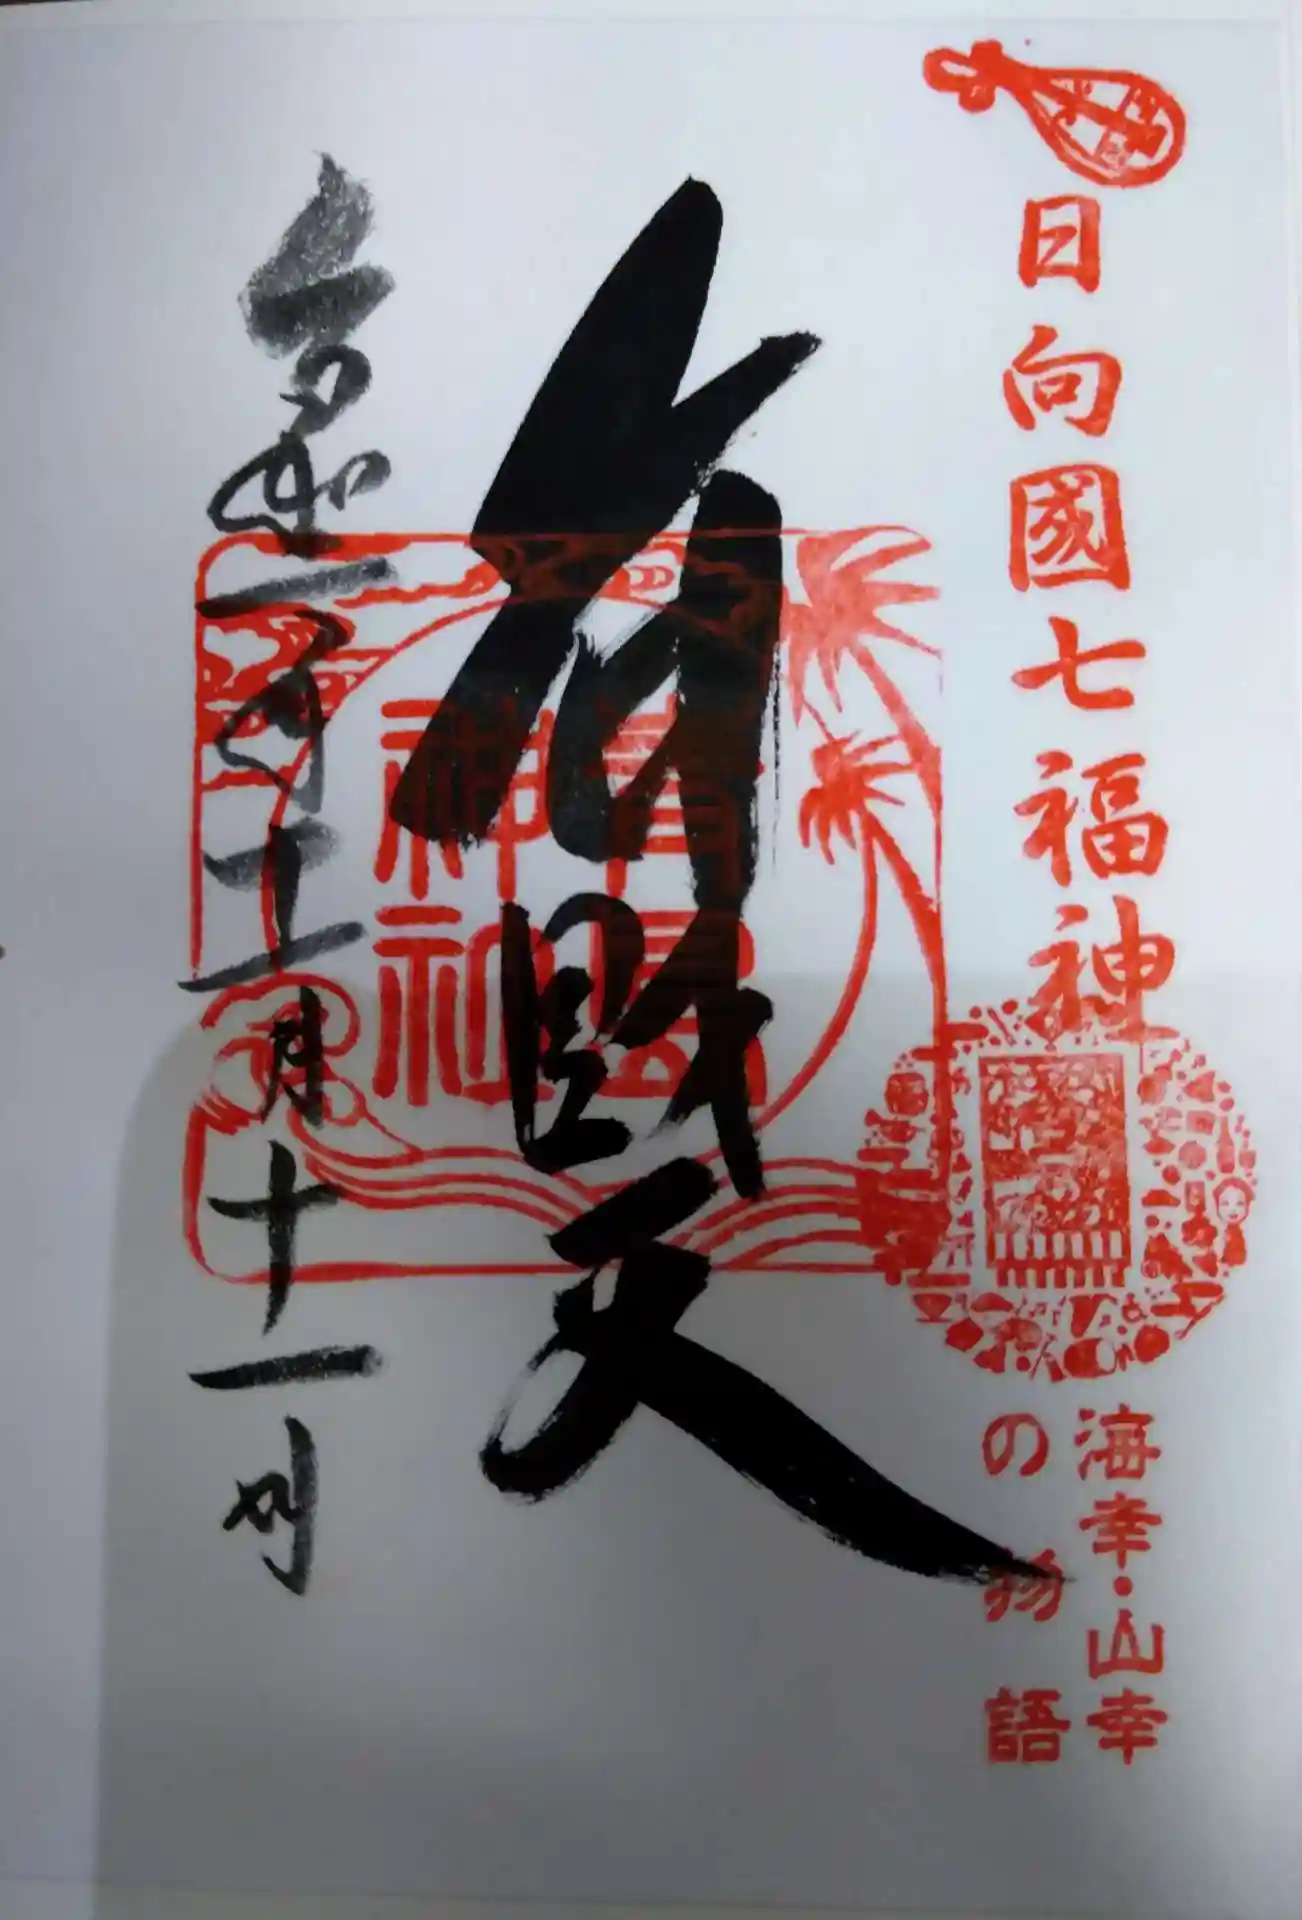 日向國七福神
海幸・山幸
の物語
弁財天
青島
神社
令和二年十二月十一日